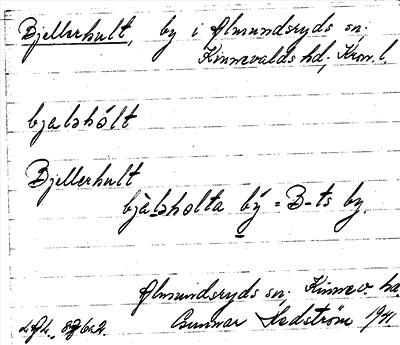 Bjellerhult, by i Almundsryds sn;
Kinnevalds hd; Kron. l.
bjeləhólt
Bjellerhult
bjä̀ləholta bý = B-ts by.
Almundsryds sn; Kinnev. hd
Gunnar Hedström 1941.